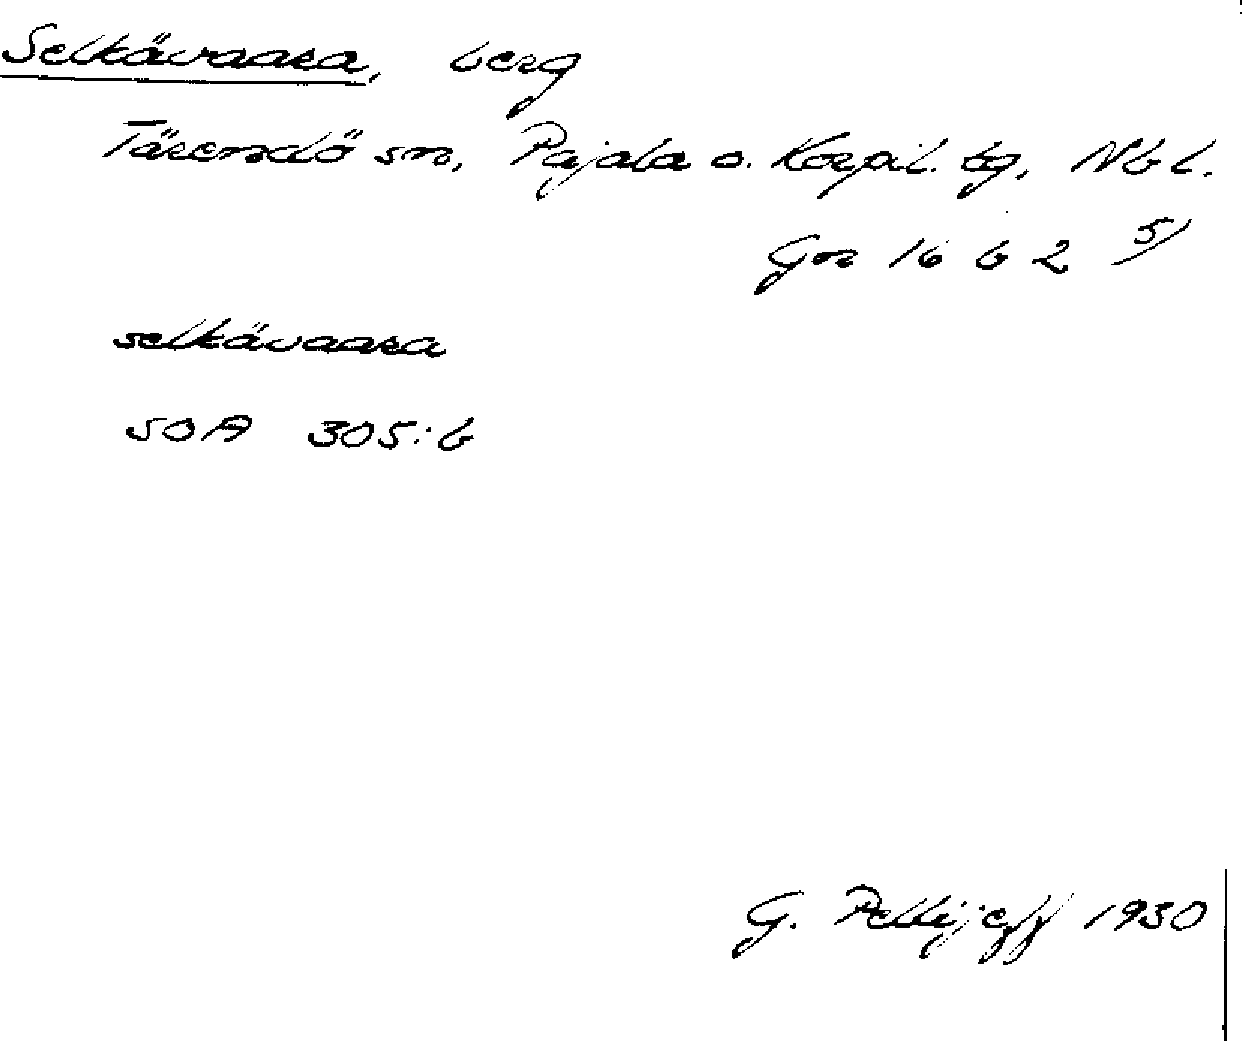 Selkävaara, berg
Tärendö sn, Pajala o. Korpil. tg, Nb l.
Gn 16 b 2 5/
selkävaara
SOA 305:6
G. Pellijeff 1930